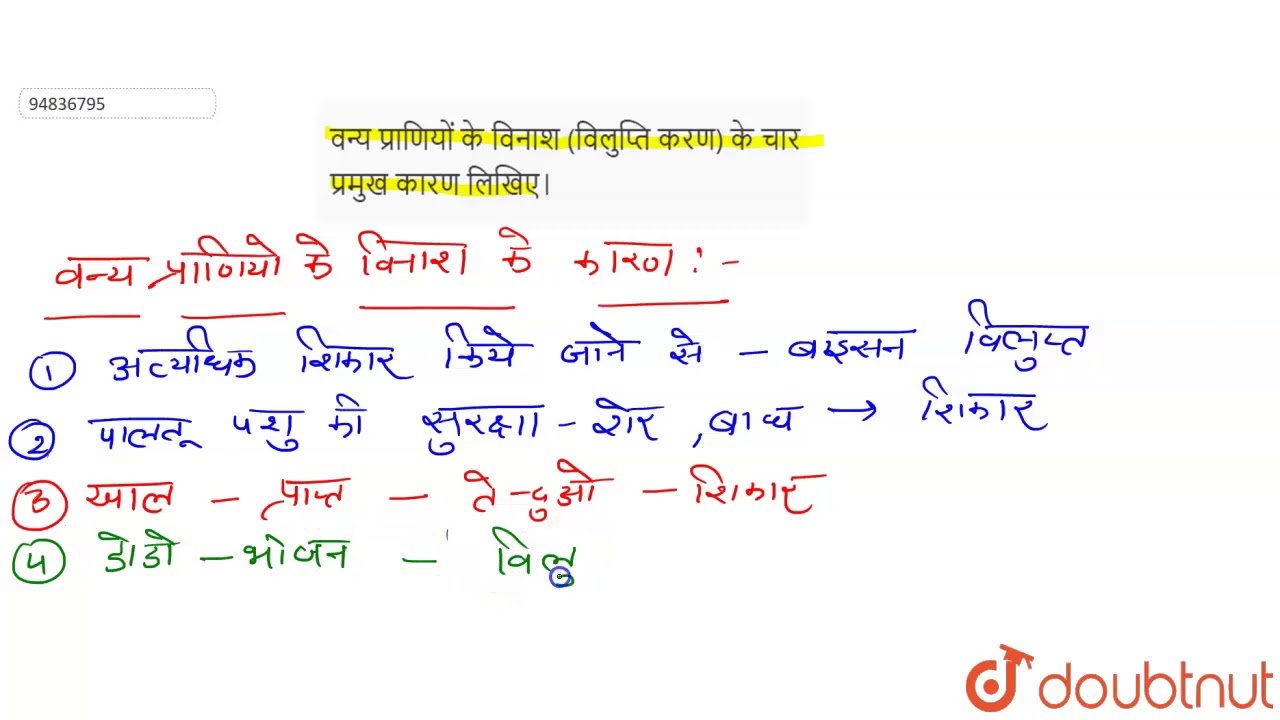 94836795
वन्य प्राणियों के विनाश (विलुप्ति करण) के चार
प्रमुख कारण लिखिए।
वन्य प्राणियो के विनाश के कारण :-
① अत्यधिक शिकार किये जाने से - बाइसन विलुप्त
② पालतू पशु की सुरक्षा - शेर, बाघ → शिकार
③ खाल - प्राप्त - तेन्दुओ - शिकार
④ डोडो - भोजन - विलु
doubtnut